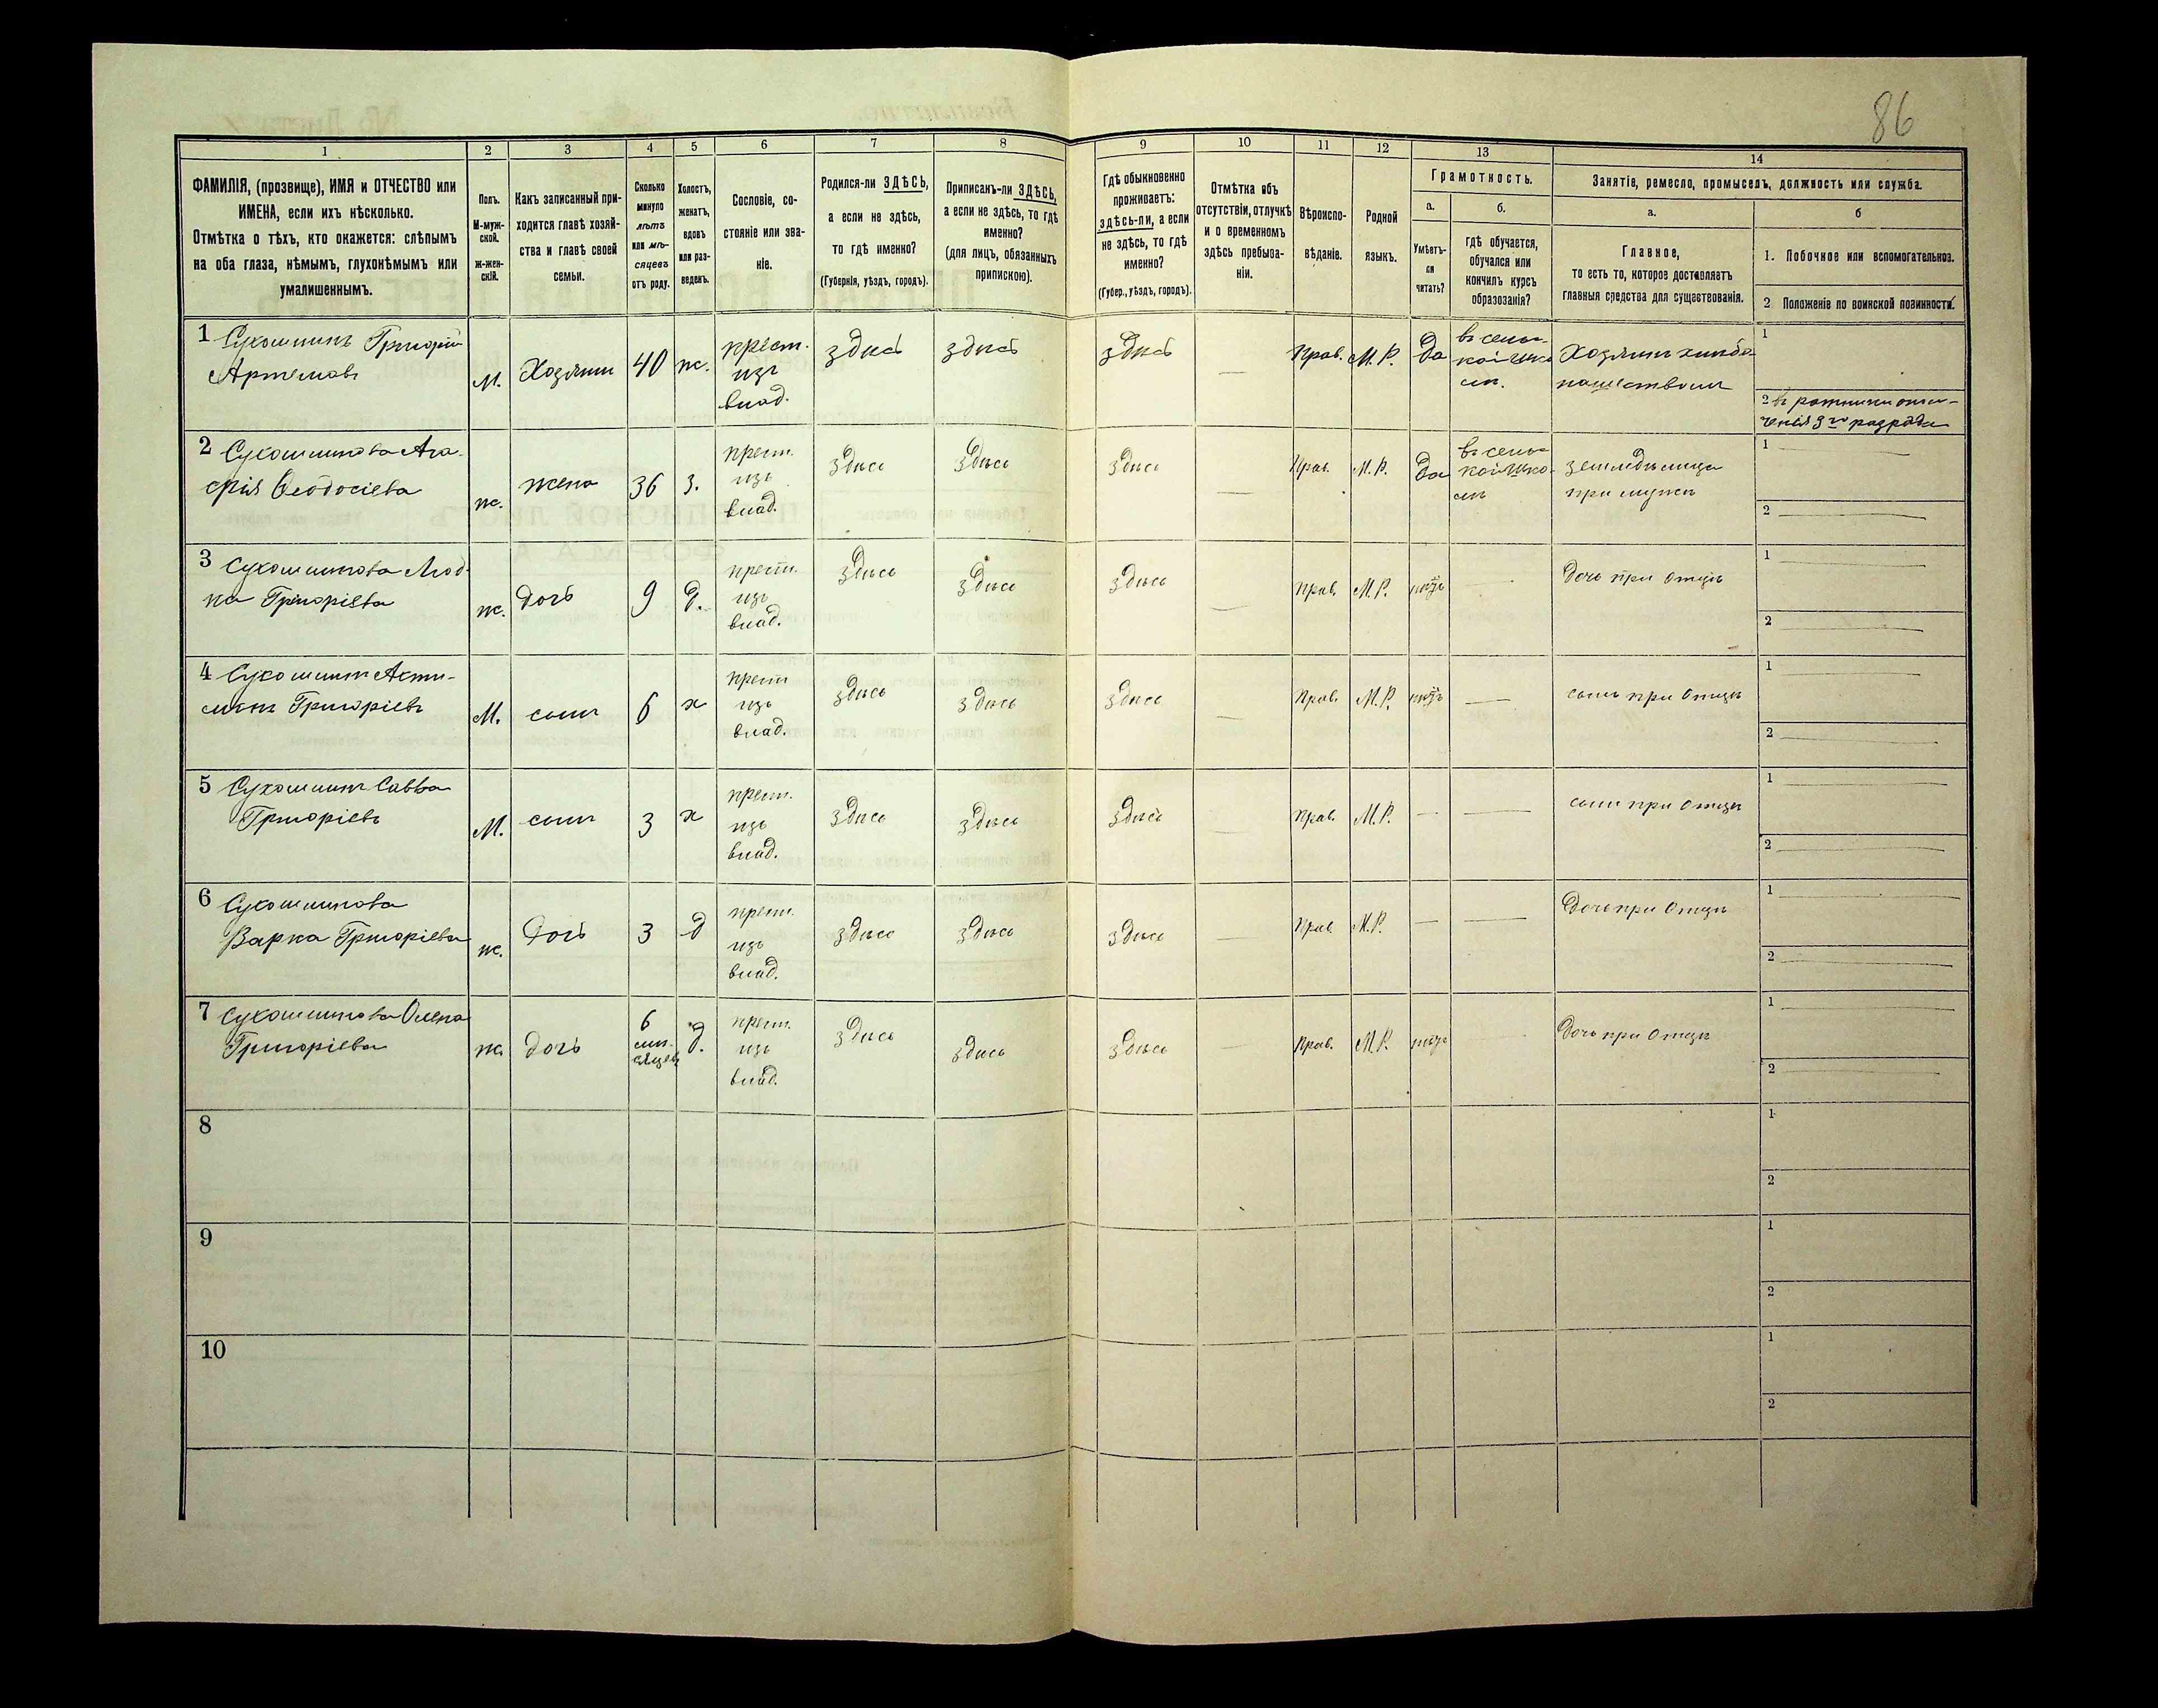 86
1 2 3 4 5 6 7 8 9 10 11 12 13 14
ФАМИЛІЯ, (прозвище), ИМЯ и ОТЧЕСТВО или
ИМЕНА, если ихъ нѣсколько.
Отмѣтка о тѣхъ, кто окажется: слѣпымъ
на оба глаза, нѣмымъ, глухонѣмымъ или
умалишеннымъ.
Полъ.
М-муж-
ской.
ж-жен-
скій.
Какъ записанный при-
ходится главѣ хозяй-
ства и главѣ своей
семьи.
Сколько
минуло
лѣтъ
или мѣ-
сяцевъ
отъ роду.
Холостъ,
женатъ,
вдовъ
или раз-
веденъ.
Сословіе, со-
стояніе или зва-
ніе.
Родился-ли ЗДѢСЬ,
а если не здѣсь,
то гдѣ именно?
(Губернія, уѣздъ, городъ).
Приписанъ-ли ЗДѢСЬ,
а если не здѣсь, то гдѣ
именно?
(для лицъ, обязанныхъ
припискою).
Гдѣ обыкновенно
проживаетъ:
здѣсь-ли, а если
не здѣсь, то гдѣ
именно?
(Губер., уѣздъ, городъ).
Отмѣтка объ
отсутствіи, отлучкѣ
и о временномъ
здѣсь пребыва-
ніи.
Вѣроиспо-
вѣданіе.
Родной
языкъ.
Грамотность.
а.
Умѣетъ-
ли
читать?
б.
гдѣ обучается,
обучался или
кончилъ курсъ
образованія?
Занятіе, ремесло, промыселъ, должность или служба.
а.
Главное,
то есть то, которое доставляетъ
главныя средства для существованія.
б
1. Побочное или вспомогательное.
2 Положеніе по воинской повинности.
1 Сухошинъ Григорій
Артемовъ
М.
Хозяинъ
40
ж.
крест.
изъ
влад.
здѣсь
здѣсь
здѣсь
—
Прав.
М. Р.
да
въ сель-
кой шко
лѣ.
Хозяинъ хлѣбо
пашествомъ
1
2 въ ратники опол-
ченія 3го разряда
2 Сухошинова Ага-
фія Ѳеодосіева
ж.
жена
36
з.
крест.
изъ
влад.
здѣсь
здѣсь
здѣсь
—
Прав.
М. Р.
да
въ сель-
кой шко-
лѣ
земледѣлица
при мужѣ
1
2
3 Сухошинова Люд-
ка Григоріева
ж.
дочь
9
д.
крест.
изъ
влад.
здѣсь
здѣсь
здѣсь
—
Прав.
М. Р.
нѣтъ
—
дочь при отцѣ
1
2
4 Сухошинъ
Григоріевъ
М.
сынъ
6
х
крест
изъ
влад.
здѣсь
здѣсь
здѣсь
—
Прав.
М. Р.
нѣтъ
—
сынъ при отцѣ
1
2
5 Сухошинъ Савва
Григоріевъ
М.
сынъ
3
х
крест.
изъ
влад.
здѣсь
здѣсь
здѣсь
—
Прав.
М. Р.
—
—
сынъ при отцѣ
1
2
6 Сухошинова
Варка Григоріева
ж.
дочь
3
д
крест.
изъ
влад.
здѣсь
здѣсь
здѣсь
—
Прав.
М. Р.
—
—
дочь при отцѣ
1
2
7 Сухошинова Олена
Григоріева
ж.
дочь
6
мѣ-
сяцевъ
д.
крест.
изъ
влад.
здѣсь
здѣсь
здѣсь
—
Прав.
М. Р.
нѣтъ
—
дочь при отцѣ
1
2
8
1
2
9
1
2
10
1
2